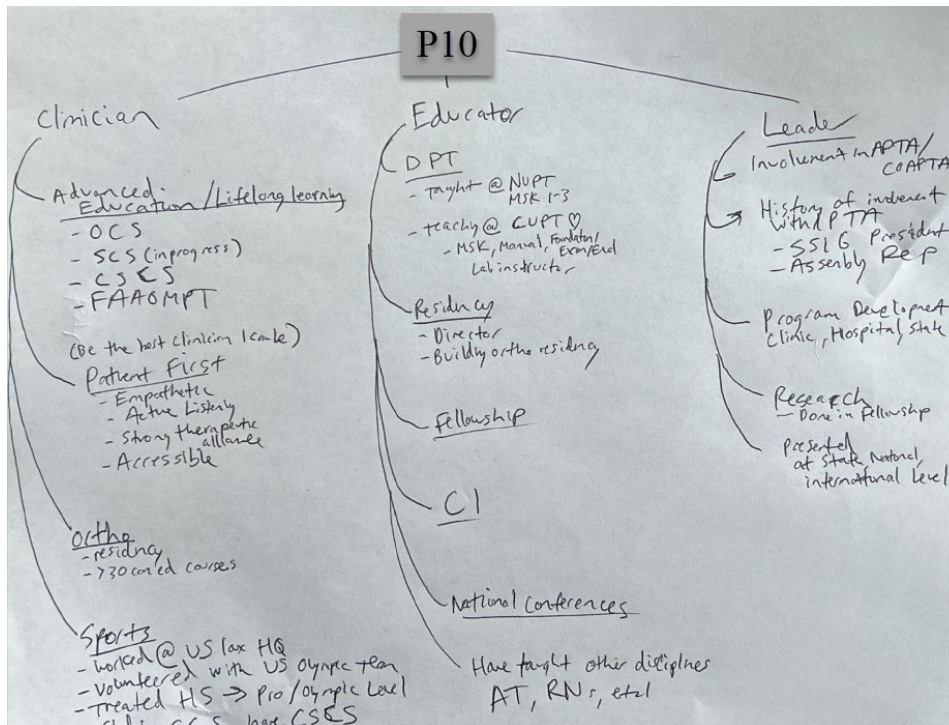 P10
Clinician
Advanced
Education / Lifelong learning
- OCS
- SCS (in progress)
- CSCS
- FAAOMPT
(Be the best clinician I can be)
Patient First
- Empathetic
- Active Listening
- Strong therapeutic
alliance
- Accessible
Ortho
- residency
- >30 con ed courses
Sports
- worked @ US lax HQ
- volunteered with US Olympic team
- Treated HS → Pro/Olympic Level
SCS, have CSCS
Educator
DPT
- Taught @ NUPT
MSK 1-3
- teaching @ CUPT ♡
- MSK, Manual, Foundation/
Exam/Eval
Lab instructor
Residency
- Director
- Building ortho residency
- Fellowship
- CI
- National Conferences
Have taught other disciplines
AT, RNs, etc
Leader
Involvement in APTA/
COAPTA
History of involvement
with APTA
- SSIG President
- Assembly Rep
Program Development
Clinic, Hospital, State
Research
- Done in Fellowship
Presented
at State, National,
international Level